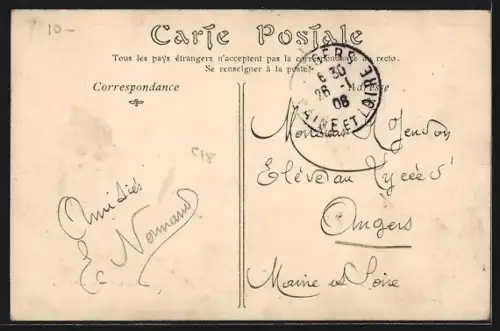 10-
Carte Postale
Tous les pays étrangers n'acceptent pas la correspondance au recto.
Se renseigner à la poste
Correspondance
Adresse
ANGERS
6 30
26 -1
08
MAINE ET LOIRE
Monsieur
Elève au Lycée d'
Angers
Maine et Loire
Amitiés
E Normand